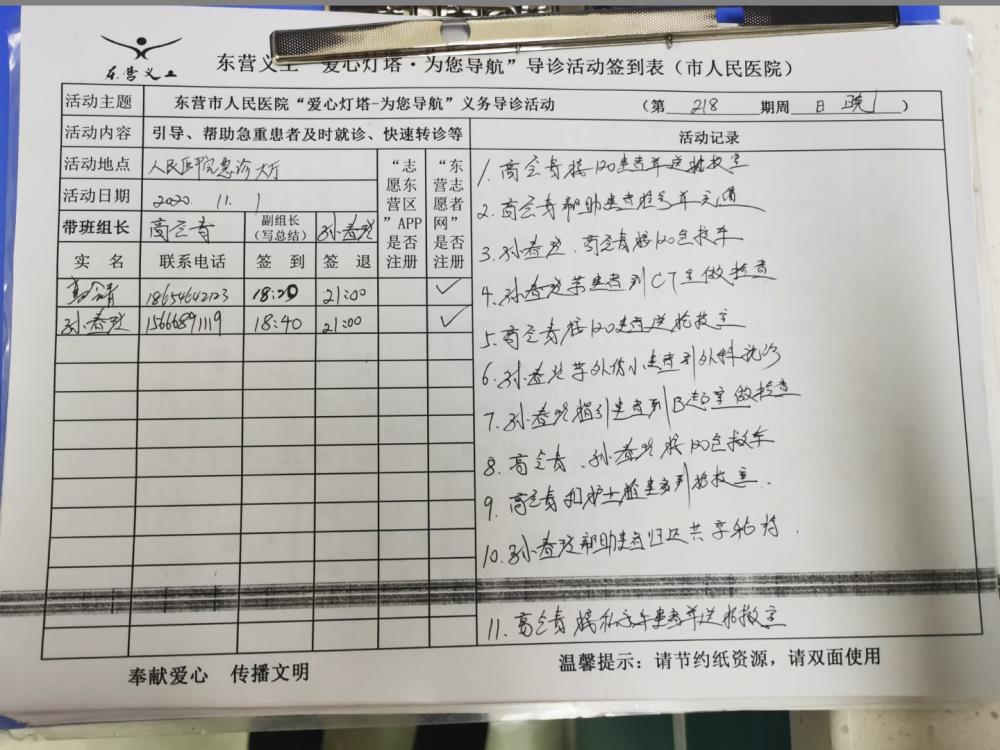 东营义工
东营义工“爱心灯塔·为您导航”导诊活动签到表（市人民医院）
活动主题 东营市人民医院“爱心灯塔-为您导航”义务导诊活动 （第 218 期周 日 晚 ）
活动内容 引导、帮助急重患者及时就诊、快速转诊等 活动记录
活动地点 人民医院急诊大厅
活动日期 2020. 11. 1
“志愿东营区”APP是否注册
“东营志愿者网”是否注册
带班组长 高会青 副组长（写总结） 孙春玲
实 名 联系电话 签 到 签 退
高会青 18654642123 18:20 21:00 ✓
孙春玲 15666891119 18:40 21:00 ✓
1. 高会青接120患者并送抢救室
2. 高会青帮助患者
3. 孙春玲、高会青接120急救车
4. 孙春玲带患者到CT室做检查
5. 高会青接120患者送抢救室
6. 孙春玲带外伤小患者到外科就诊
7. 孙春玲指引患者到B超室做检查
8. 高会青、孙春玲接120急救车
9. 高会青和护士推患者到抢救室.
10. 孙春玲帮助患者归还共享轮椅.
11. 高会青接私家车患者并送抢救室
奉献爱心 传播文明
温馨提示：请节约纸资源，请双面使用